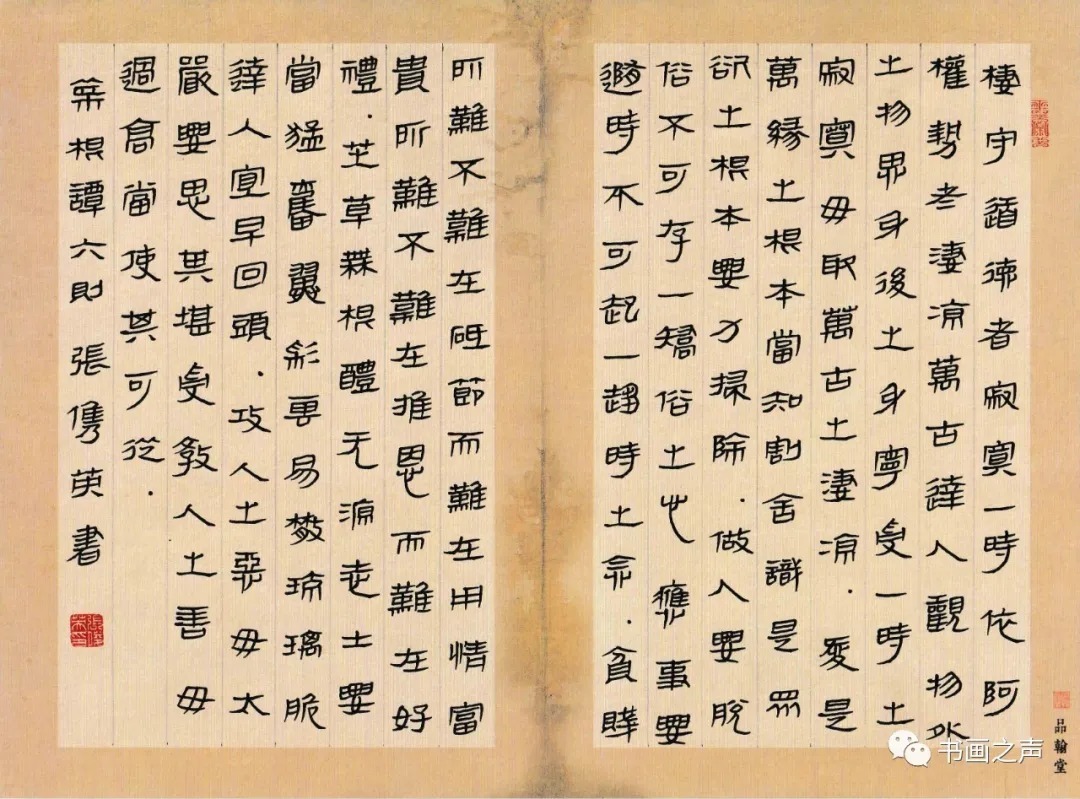 棲守道德者寂寞一時依阿
權勢者淒凉萬古達人觀物外
之物思身後之身寧受一時之
寂寞毋取萬古之淒凉.愛是
萬緣之根本當知割舍識是眾
欲之根本要力掃除.做人要脫
俗不可存一矯俗之心應事要
隨時不可起一趨時之念.貧賤
所難不難在砥節而難在用情富
貴所難不難在推恩而難在好
禮.芝草無根醴无源志士要
當猛奮翼彩雲易散琉璃脆
達人宜早回頭.攻人之惡毋太
嚴要思其堪受教人之善毋
過高當使其可從.
菜根譚六則張儁英書
品翰堂
书画之声